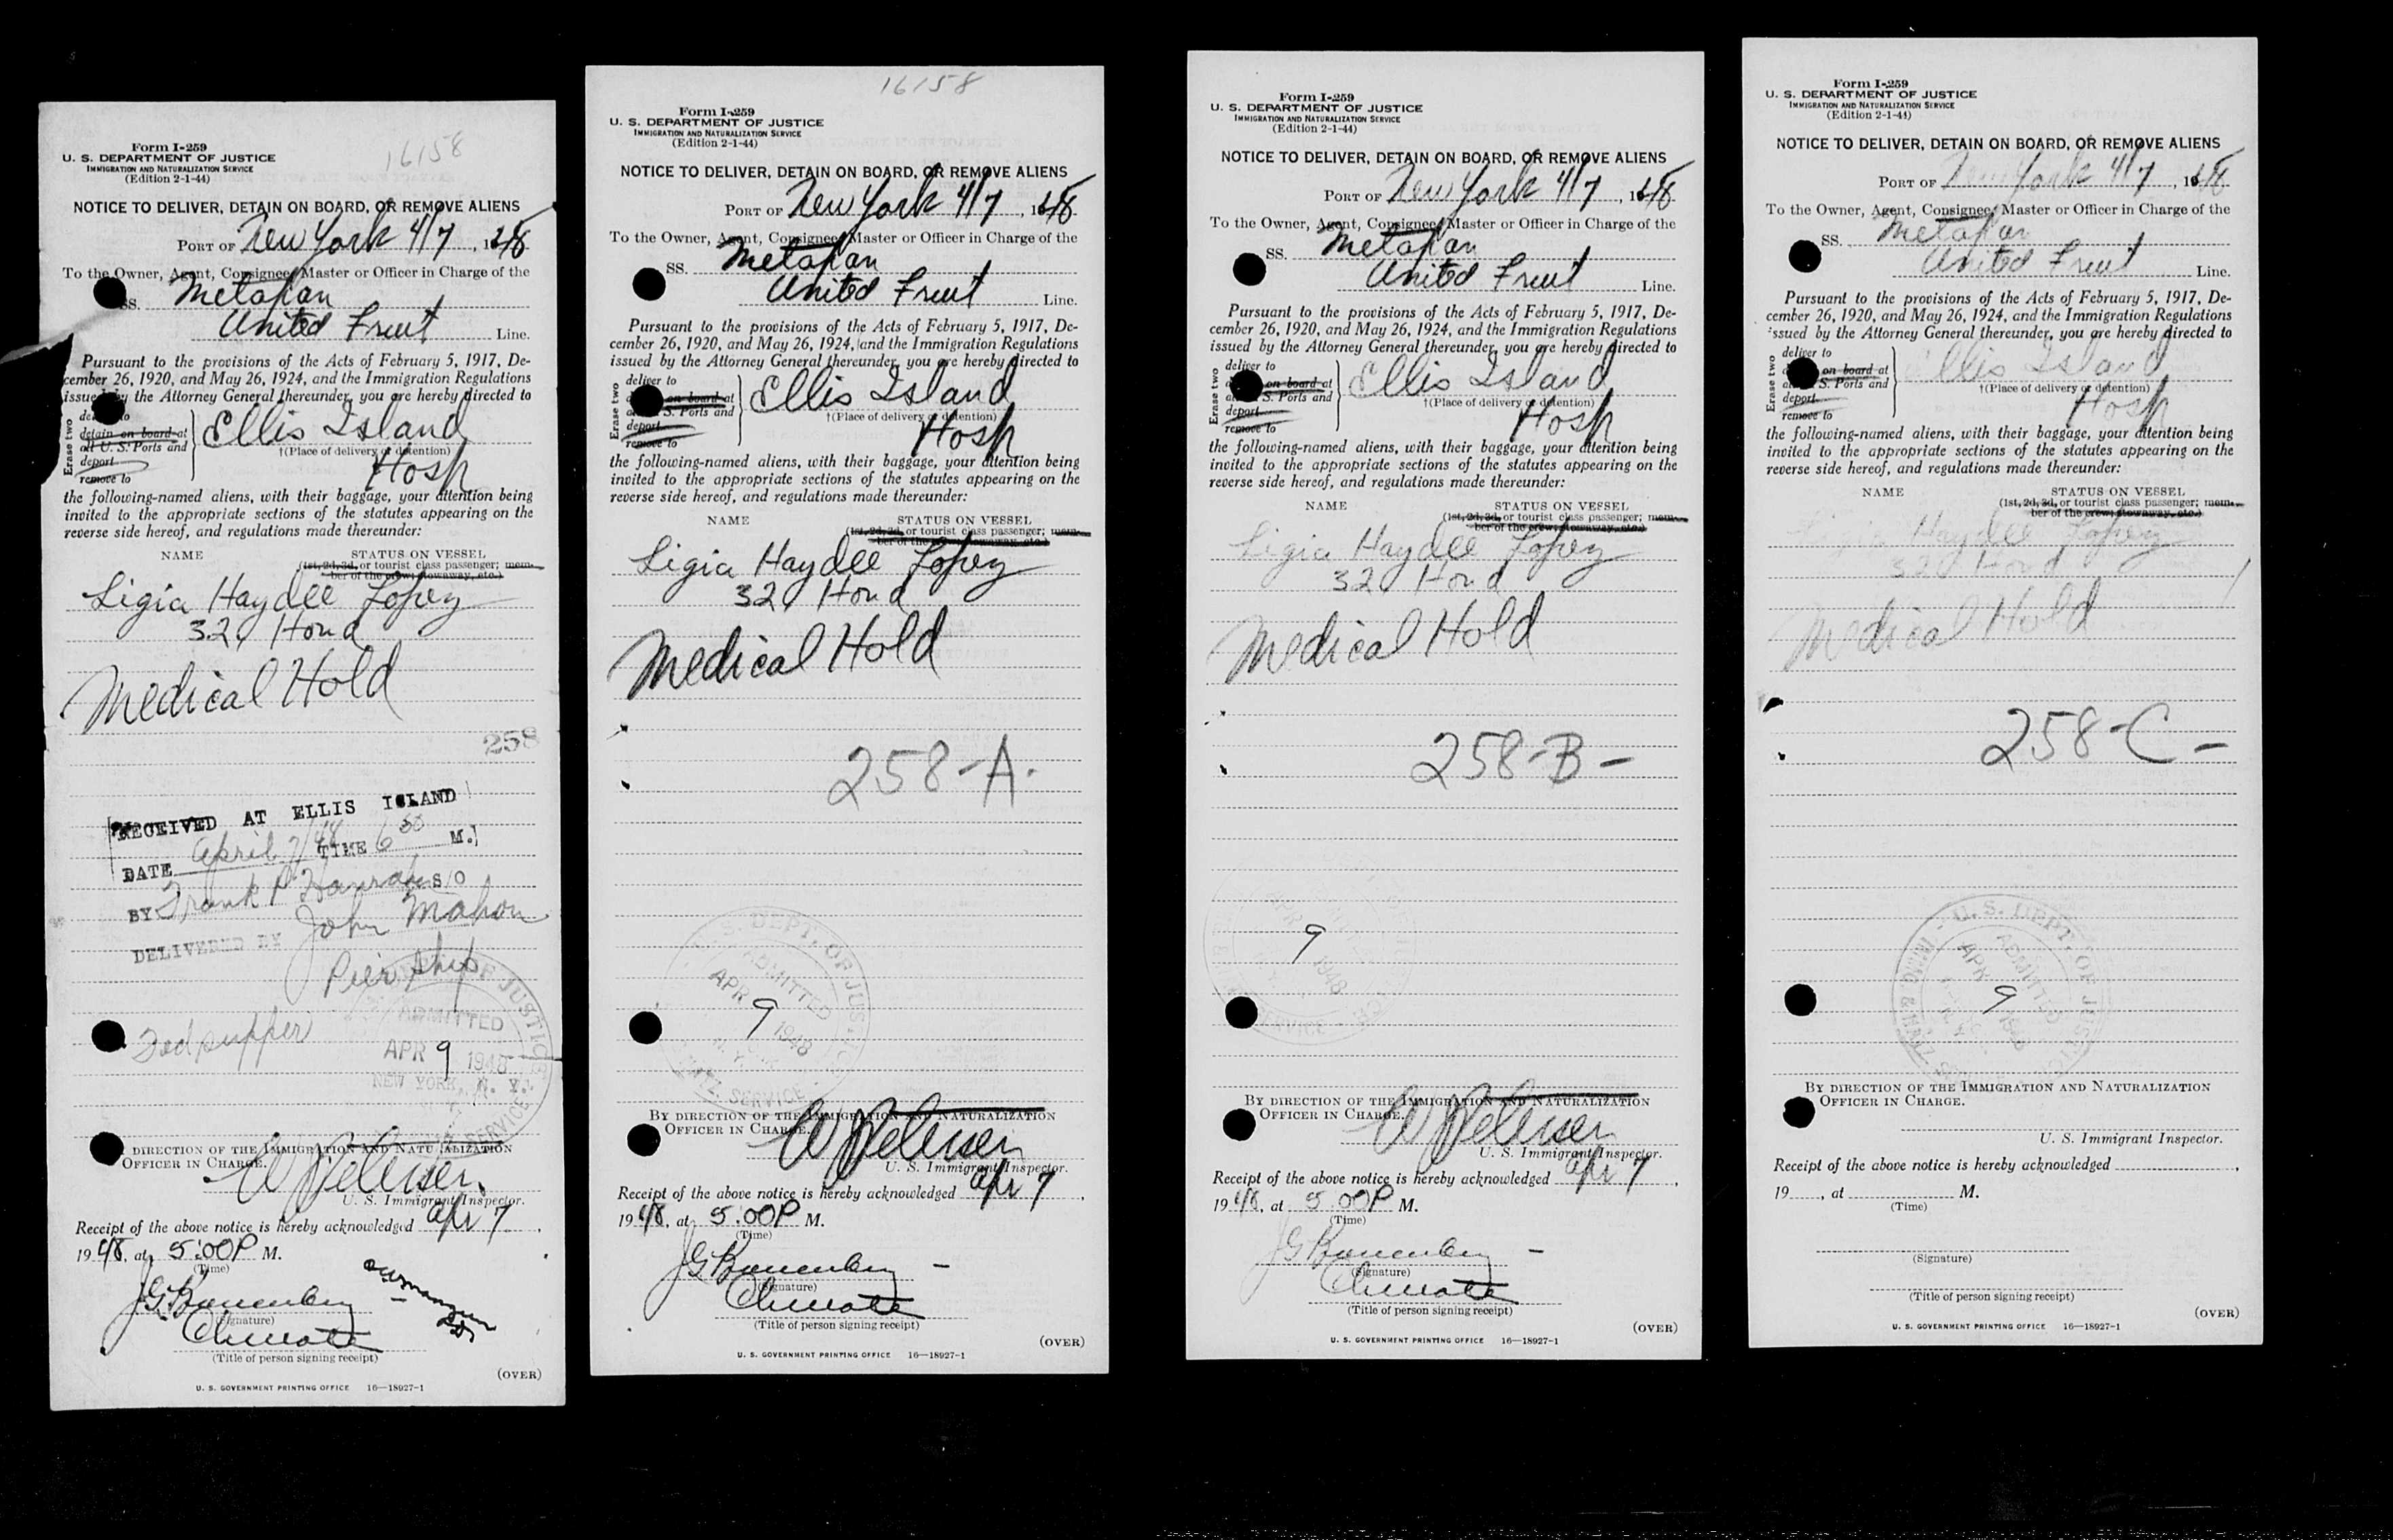 16158
Form I-259
U. S. DEPARTMENT OF JUSTICE
IMMIGRATION AND NATURALIZATION SERVICE
(Edition 2-1-44)
NOTICE TO DELIVER, DETAIN ON BOARD, OR REMOVE ALIENS
PORT OF New York 4/7, 1948
To the Owner, Agent, Consignee, Master or Officer in Charge of the
SS. Metapan
United Fruit Line.
Pursuant to the provisions of the Acts of February 5, 1917, De-
cember 26, 1920, and May 26, 1924, and the Immigration Regulations
issued by the Attorney General thereunder, you are hereby directed to
Erase two
detain on board at
all U. S. Ports and
deport
remove to
Ellis Island
†(Place of delivery or detention)
Hosp
the following-named aliens, with their baggage, your attention being
invited to the appropriate sections of the statutes appearing on the
reverse side hereof, and regulations made thereunder:
NAME STATUS ON VESSEL
(1st, 2d, 3d, or tourist class passenger; mem-
ber of the crew; stowaway, etc.)
Ligia Haydee Lopez
32, Hond
Medical Hold
258
RECEIVED AT ELLIS ISLAND
DATE April 7/48 TIME 6 50 M.
BY Frank P. Hanrahan S/O
DELIVERED BY John Mahon
Pier Ship
Fed supper
DEPT. OF JUSTICE
ADMITTED
APR 9 1948
NEW YORK, N. Y.
SERVICE
DIRECTION OF THE IMMIGRATION AND NATURALIZATION
OFFICER IN CHARGE.
U. S. Immigrant Inspector.
Receipt of the above notice is hereby acknowledged Apr 7,
1948, at 5:00P M.
(Time)
(Signature)
(Title of person signing receipt)
(OVER)
U. S. GOVERNMENT PRINTING OFFICE 16—18927-1
16158
Form I-259
U. S. DEPARTMENT OF JUSTICE
IMMIGRATION AND NATURALIZATION SERVICE
(Edition 2-1-44)
NOTICE TO DELIVER, DETAIN ON BOARD, OR REMOVE ALIENS
PORT OF New York 4/7, 1948
To the Owner, Agent, Consignee, Master or Officer in Charge of the
SS. Metapan
United Fruit Line.
Pursuant to the provisions of the Acts of February 5, 1917, De-
cember 26, 1920, and May 26, 1924, and the Immigration Regulations
issued by the Attorney General thereunder, you are hereby directed to
Erase two
deliver to
on board at
S. Ports and
deport
remove to
Ellis Island
†(Place of delivery or detention)
Hosp
the following-named aliens, with their baggage, your attention being
invited to the appropriate sections of the statutes appearing on the
reverse side hereof, and regulations made thereunder:
NAME STATUS ON VESSEL
(1st, 2d, 3d, or tourist class passenger; mem-
ber of the crew; stowaway, etc.)
Ligia Haydee Lopez
32, Hond
Medical Hold
258-A-
U. S. DEPT. OF JUSTICE
ADMITTED
APR 9 1948
N. Y.
NATZ. SERVICE
BY DIRECTION OF THE IMMIGRATION AND NATURALIZATION
OFFICER IN CHARGE.
U. S. Immigrant Inspector.
Receipt of the above notice is hereby acknowledged Apr 7,
1948, at 5:00P M.
(Time)
(Signature)
(Title of person signing receipt)
(OVER)
U. S. GOVERNMENT PRINTING OFFICE 16—18927-1
Form I-259
U. S. DEPARTMENT OF JUSTICE
IMMIGRATION AND NATURALIZATION SERVICE
(Edition 2-1-44)
NOTICE TO DELIVER, DETAIN ON BOARD, OR REMOVE ALIENS
PORT OF New York 4/7, 1948
To the Owner, Agent, Consignee, Master or Officer in Charge of the
SS. Metapan
United Fruit Line.
Pursuant to the provisions of the Acts of February 5, 1917, De-
cember 26, 1920, and May 26, 1924, and the Immigration Regulations
issued by the Attorney General thereunder, you are hereby directed to
Erase two
deliver to
on board at
S. Ports and
deport
remove to
Ellis Island
†(Place of delivery or detention)
Hosp
the following-named aliens, with their baggage, your attention being
invited to the appropriate sections of the statutes appearing on the
reverse side hereof, and regulations made thereunder:
NAME STATUS ON VESSEL
(1st, 2d, 3d, or tourist class passenger; mem-
ber of the crew; stowaway, etc.)
Ligia Haydee Lopez
32, Hond
Medical Hold
258-B-
APR 9 1948
SERVICE
BY DIRECTION OF THE IMMIGRATION AND NATURALIZATION
OFFICER IN CHARGE.
U. S. Immigrant Inspector.
Receipt of the above notice is hereby acknowledged Apr 7,
1948, at 5:00P M.
(Time)
(Signature)
(Title of person signing receipt)
(OVER)
U. S. GOVERNMENT PRINTING OFFICE 16—18927-1
Form I-259
U. S. DEPARTMENT OF JUSTICE
IMMIGRATION AND NATURALIZATION SERVICE
(Edition 2-1-44)
NOTICE TO DELIVER, DETAIN ON BOARD, OR REMOVE ALIENS
PORT OF New York 4/7, 1948
To the Owner, Agent, Consignee, Master or Officer in Charge of the
SS. Metapan
United Fruit Line.
Pursuant to the provisions of the Acts of February 5, 1917, De-
cember 26, 1920, and May 26, 1924, and the Immigration Regulations
issued by the Attorney General thereunder, you are hereby directed to
Erase two
deliver to
on board at
S. Ports and
deport
remove to
Ellis Island
†(Place of delivery or detention)
Hosp
the following-named aliens, with their baggage, your attention being
invited to the appropriate sections of the statutes appearing on the
reverse side hereof, and regulations made thereunder:
NAME STATUS ON VESSEL
(1st, 2d, 3d, or tourist class passenger; mem-
ber of the crew; stowaway, etc.)
Ligia Haydee Lopez
32, Hond
Medical Hold
258-C-
U. S. DEPT. OF JUSTICE
ADMITTED
APR 9 1948
N. Y.
IMMI. & NATZ.
BY DIRECTION OF THE IMMIGRATION AND NATURALIZATION
OFFICER IN CHARGE.
U. S. Immigrant Inspector.
Receipt of the above notice is hereby acknowledged ,
19 , at M.
(Time)
(Signature)
(Title of person signing receipt)
(OVER)
U. S. GOVERNMENT PRINTING OFFICE 16—18927-1